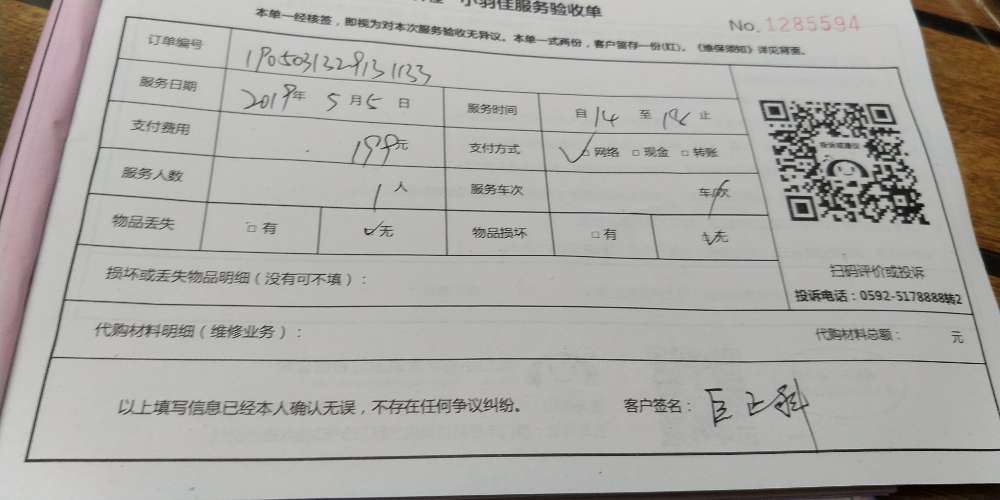 小羽佳服务验收单
本单一经核签，即视为对本次服务验收无异议。本单一式两份，客户留存一份(红)，《维保须知》详见背面。
No. 1285594
订单编号 1905031329131133
服务日期 2019年 5月5日 服务时间 自14至18止
支付费用 199元 支付方式 ☑网络 □现金 □转账
服务人数 1人 服务车次 车/次
物品丢失 □有 ☑无 物品损坏 □有 ☑无
投诉或建议
扫码评价或投诉
投诉电话：0592-5178888转2
损坏或丢失物品明细（没有可不填）：
代购材料明细（维修业务）： 代购材料总额： 元
以上填写信息已经本人确认无误，不存在任何争议纠纷。 客户签名：